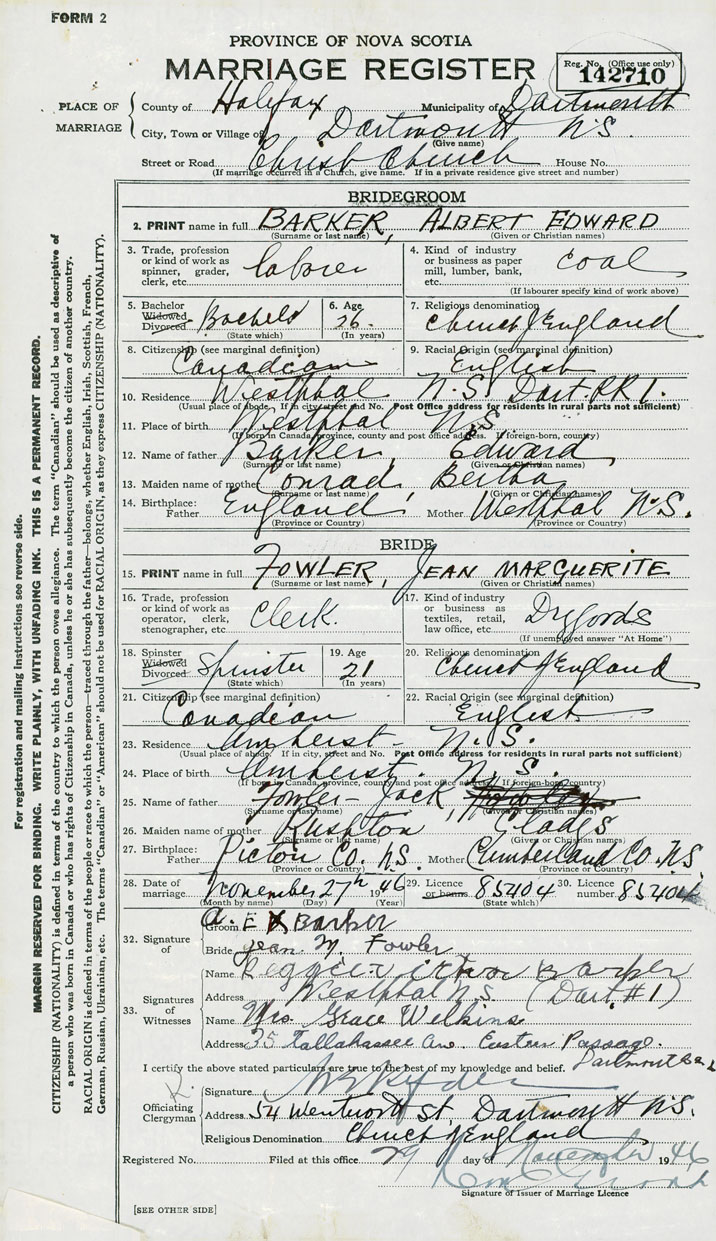 FORM 2
PROVINCE OF NOVA SCOTIA
MARRIAGE REGISTER
Reg. No. (Office use only)
142710
PLACE OF MARRIAGE
County of Halifax Municipality of Dartmouth
City, Town or Village of Dartmouth N.S.
(Give name)
Street or Road Christ Church House No.
(If marriage occurred in a Church, give name. If in a private residence give street and number)
BRIDEGROOM
2. PRINT name in full BARKER, ALBERT EDWARD
(Surname or last name) (Given or Christian names)
3. Trade, profession or kind of work as spinner, grader, clerk, etc. laborer
4. Kind of industry or business as paper mill, lumber, bank, etc. coal
(If labourer specify kind of work above)
5. Bachelor Widowed Divorced Bachelor
(State which)
6. Age 26.
(In years)
7. Religious denomination
Church of England
8. Citizenship (see marginal definition)
Canadian
9. Racial Origin (see marginal definition)
English
10. Residence Westphal N.S. Dart. RR 1.
(Usual place of abode. If in city, street and No. Post Office address for residents in rural parts not sufficient)
11. Place of birth Westphal N.S.
(If born in Canada, province, county and post office address. If foreign-born, county)
12. Name of father Barker, Edward
(Surname or last name) (Given or Christian names)
13. Maiden name of mother Conrad Bertha
(Surname or last name) (Given or Christian names)
14. Birthplace: Father England Mother Westphal N.S.
(Province or Country) (Province or Country)
BRIDE
15. PRINT name in full FOWLER, JEAN MARGUERITE
(Surname or last name) (Given or Christian names)
16. Trade, profession or kind of work as operator, clerk, stenographer, etc. Clerk.
17. Kind of industry or business as textiles, retail, law office, etc. Drygoods
(If unemployed answer "At Home")
18. Spinster Widowed Divorced Spinster
(State which)
19. Age 21
(In years)
20. Religious denomination
Church of England
21. Citizenship (see marginal definition)
Canadian
22. Racial Origin (see marginal definition)
English
23. Residence Amherst - N.S.
(Usual place of abode. If in city, street and No. Post Office address for residents in rural parts not sufficient)
24. Place of birth Amherst. N.S.
(If born in Canada, province, county and post office address. If foreign-born, country)
25. Name of father Fowler - Jack
(Surname or last name) (Given or Christian names)
26. Maiden name of mother Rushton Gladys
(Surname or last name) (Given or Christian names)
27. Birthplace: Father Pictou Co. N.S. Mother Cumberland Co. N.S.
(Province or Country) (Province or Country)
28. Date of marriage November 27th 1946
(Month by name) (Day) (Year)
29. Licence or banns 85404
(State which)
30. Licence number 85404
32. Signature of
Groom A. E Barker
Bride Jean M. Fowler
33. Signatures of Witnesses
Name Barker
Address Westphal N.S. (Dart #1)
Name Mrs. Grace Welkins
Address 35 Tallahassee Ave. Eastern Passage.
Dartmouth
I certify the above stated particulars are true to the best of my knowledge and belief.
Officiating Clergyman
Signature
Address 54 Wentworth St Dartmouth N.S.
Religious Denomination Church of England
Registered No. Filed at this office 29 day of November 1946
Signature of Issuer of Marriage Licence
[SEE OTHER SIDE]
For registration and mailing instructions see reverse side.
MARGIN RESERVED FOR BINDING. WRITE PLAINLY, WITH UNFADING INK. THIS IS A PERMANENT RECORD.
CITIZENSHIP (NATIONALITY) is defined in terms of the country to which the person owes allegiance. The term "Canadian" should be used as descriptive of
a person who was born in Canada or who has rights of Citizenship in Canada, unless he or she has subsequently become the citizen of another country.
RACIAL ORIGIN is defined in terms of the people or race to which the person—traced through the father—belongs, whether English, Irish, Scottish, French,
German, Russian, Ukrainian, etc. The terms "Canadian" or "American" should not be used for RACIAL ORIGIN, as they express CITIZENSHIP (NATIONALITY).